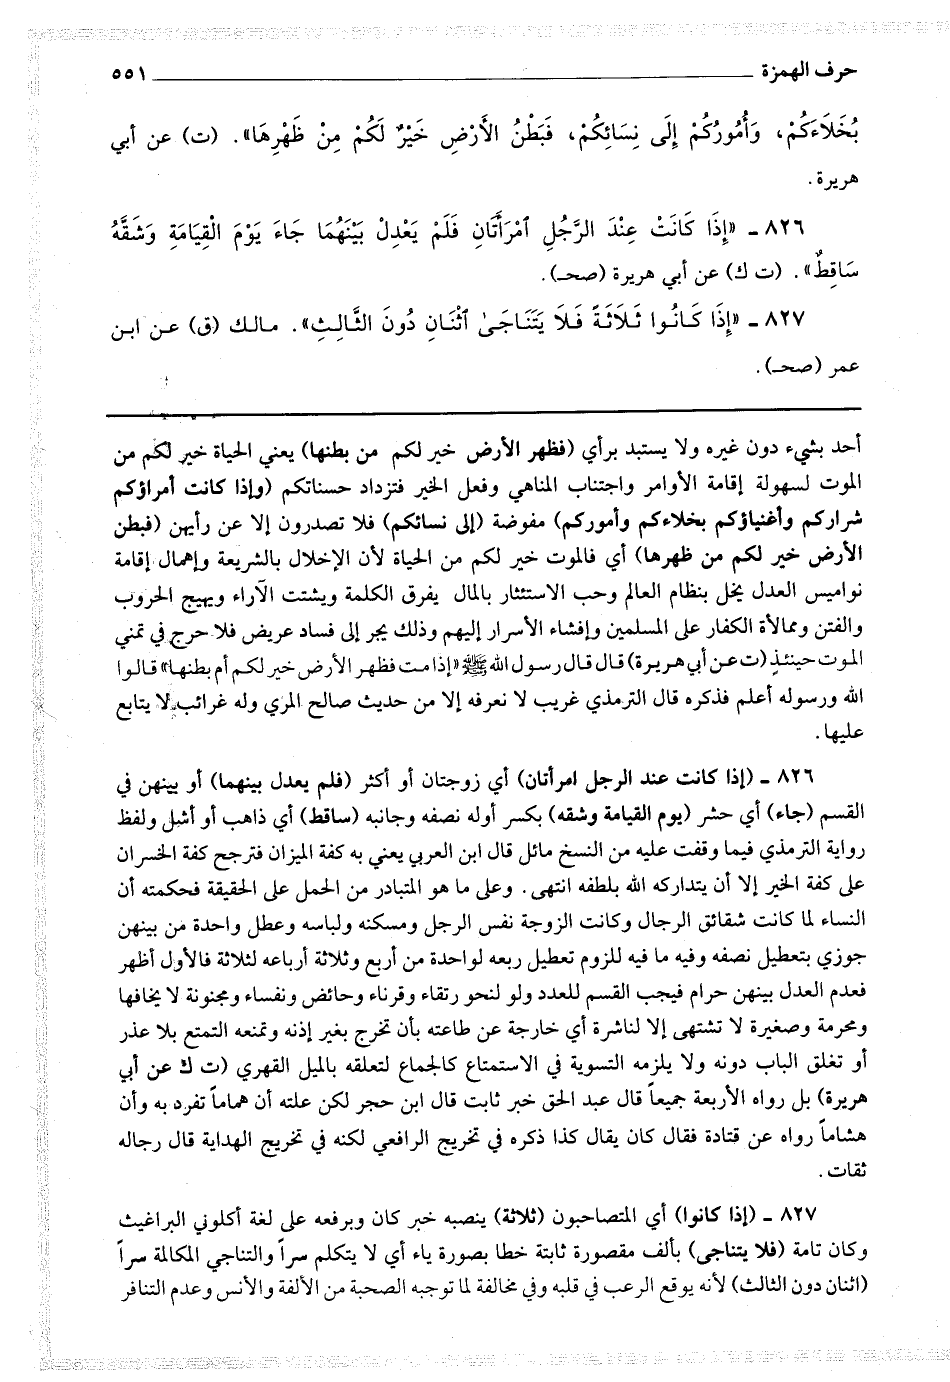 حرف الهمزة ٥٥١
بُخَلَاءَكُمْ، وَأُمُورُكُمْ إِلَى نِسَائِكُمْ، فَبَطْنُ الأَرْضِ خَيْرٌ لَكُمْ مِنْ ظَهْرِهَا». (ت) عن أبي
هريرة.
٨٢٦ ـ «إِذَا كَانَتْ عِنْدَ الرَّجُلِ ٱمْرَأَتَانِ فَلَمْ يَعْدِلْ بَيْنَهُمَا جَاءَ يَوْمَ الْقِيَامَةِ وَشَقَّهُ
سَاقِطٌ». (ت ك) عن أبي هريرة (صحـ).
٨٢٧ ـ «إِذَا كَانُوا ثَلَاثَةً فَلَا يَتَنَاجَىٰ ٱثْنَانِ دُونَ الثَّالِثِ». مالك (ق) عن ابن
عمر (صحـ).
أحد بشيء دون غيره ولا يستبد برأي (فظهر الأرض خير لكم من بطنها) يعني الحياة خير لكم من
الموت لسهولة إقامة الأوامر واجتناب المناهي وفعل الخير فتزداد حسناتكم (وإذا كانت أمراؤكم
شراركم وأغنياؤكم بخلاءكم وأموركم) مفوضة (إلى نسائكم) فلا تصدرون إلا عن رأيهن (فبطن
الأرض خير لكم من ظهرها) أي فالموت خير لكم من الحياة لأن الإخلال بالشريعة وإهمال إقامة
نواميس العدل يخل بنظام العالم وحب الاستئثار بالمال يفرق الكلمة ويشتت الآراء ويهيج الحروب
والفتن وممالأة الكفار على المسلمين وإفشاء الأسرار إليهم وذلك يجر إلى فساد عريض فلا حرج في تمني
الموت حينئذٍ (ت عن أبي هريرة) قال قال رسول الله ﷺ «إذا مت فظهر الأرض خير لكم أم بطنها» قالوا
الله ورسوله أعلم فذكره قال الترمذي غريب لا نعرفه إلا من حديث صالح المري وله غرائب لا يتابع
عليها.
٨٢٦ ـ (إذا كانت عند الرجل امرأتان) أي زوجتان أو أكثر (فلم يعدل بينهما) أو بينهن في
القسم (جاء) أي حشر (يوم القيامة وشقه) بكسر أوله نصفه وجانبه (ساقط) أي ذاهب أو أشل ولفظ
رواية الترمذي فيما وقفت عليه من النسخ مائل قال ابن العربي يعني به كفة الميزان فترجح كفة الخسران
على كفة الخير إلا أن يتداركه الله بلطفه انتهى. وعلى ما هو المتبادر من الحمل على الحقيقة فحكمته أن
النساء لما كانت شقائق الرجال وكانت الزوجة نفس الرجل ومسكنه ولباسه وعطل واحدة من بينهن
جوزي بتعطيل نصفه وفيه ما فيه للزوم تعطيل ربعه لواحدة من أربع وثلاثة أرباعه لثلاثة فالأول أظهر
فعدم العدل بينهن حرام فيجب القسم للعدد ولو لنحو رتقاء وقرناء وحائض ونفساء ومجنونة لا يخافها
ومحرمة وصغيرة لا تشتهى إلا لناشزة أي خارجة عن طاعته بأن تخرج بغير إذنه وتمنعه التمتع بلا عذر
أو تغلق الباب دونه ولا يلزمه التسوية في الاستمتاع كالجماع لتعلقه بالميل القهري (ت ك عن أبي
هريرة) بل رواه الأربعة جميعاً قال عبد الحق خبر ثابت قال ابن حجر لكن علته أن هماماً تفرد به وأن
هشاماً رواه عن قتادة فقال كان يقال كذا ذكره في تخريج الرافعي لكنه في تخريج الهداية قال رجاله
ثقات.
٨٢٧ ـ (إذا كانوا) أي المتصاحبون (ثلاثة) ينصبه خبر كان وبرفعه على لغة أكلوني البراغيث
وكان تامة (فلا يتناجى) بألف مقصورة ثابتة خطا بصورة ياء أي لا يتكلم سراً والتناجي المكالمة سراً
(اثنان دون الثالث) لأنه يوقع الرعب في قلبه وفي مخالفة لما توجبه الصحبة من الألفة والأنس وعدم التنافر